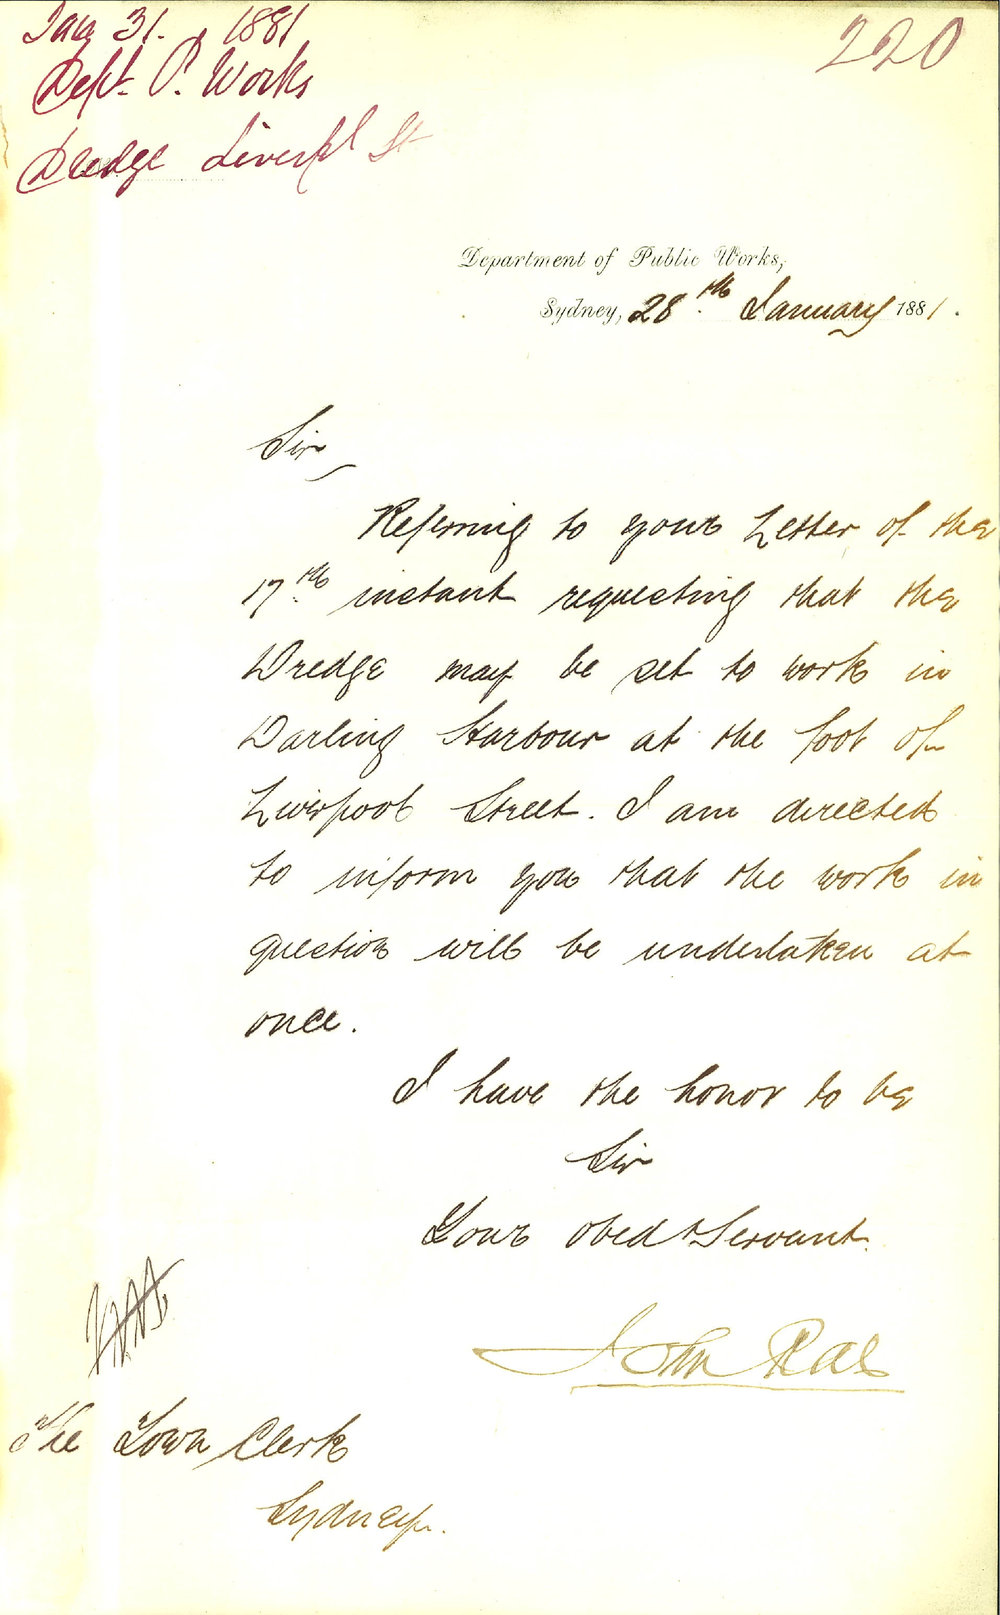 Jany 31. 1881
Dept. P. Works
Dredge Liverpl St
220
Department of Public Works,
Sydney, 28th January 1881.
Sir,
Referring to your Letter of the
17th instant requesting that the
Dredge may be set to work in
Darling Harbour at the foot of
Liverpool Street. I am directed
to inform you that the work in
question will be undertaken at
once.
I have the honor to be
Sir
Your obedt Servant.
John Rae
The Town Clerk
Sydney.